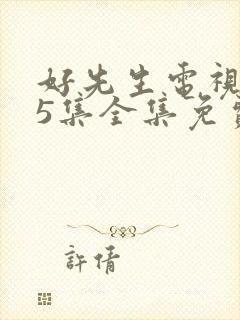 好先生電視
5集全集免費
許倩